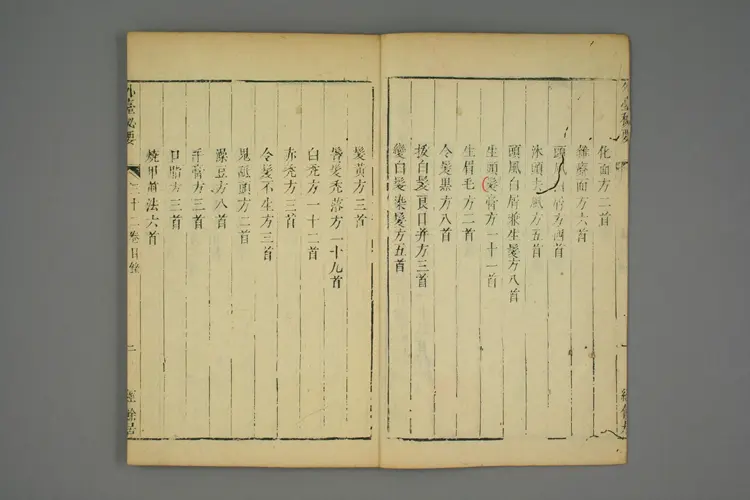 化面方二首
雜療面方六首
頭風白屑方四首
沐頭去風方五首
頭風白屑兼生髮方八首
生頭髮膏方一十一首
生眉毛方二首
令髮黑方八首
拔白髮良日并方三首
變白髮染髮方五首
髮黃方三首
鬢髮禿落方一十九首
白禿方一十二首
赤禿方三首
令髮不生方三首
鬼舐頭方二首
澡豆方八首
手膏方三首
口脂方三首
燒甲煎法六首
外臺秘要
三十二卷目錄
二
經餘居